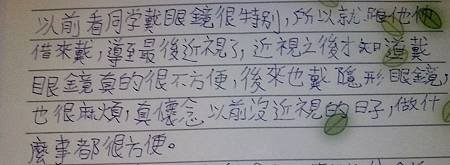 以前看同學戴眼鏡很特別,所以就跟他們
借來戴,導至最後近視了,近視之後才知道戴
眼鏡真的很不方便,後來也戴隱形眼鏡,
也很麻煩,真懷念以前沒近視的日子,做什
麼事都很方便。